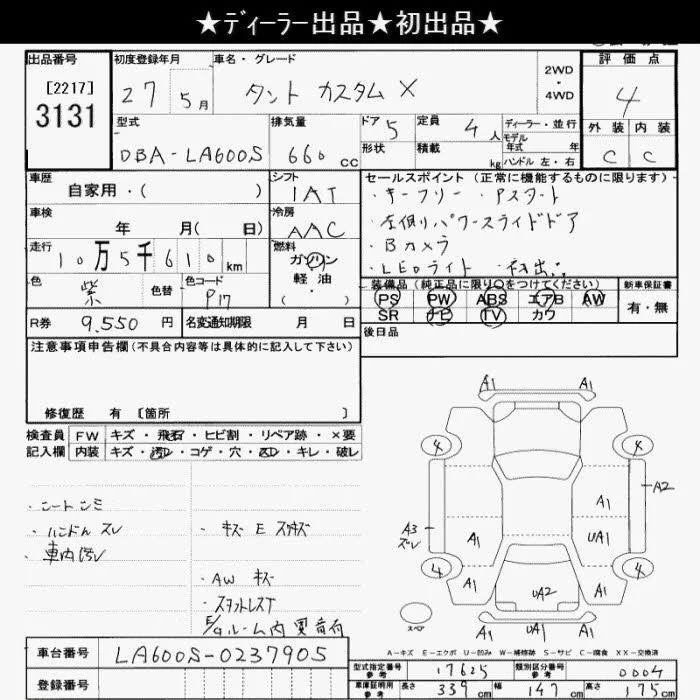 ★ディーラー出品★初出品★
出品番号
[2217]
3131
初度登録年月
27 5月
車名・グレード
タント カスタム X
2WD
・
4WD
評価点
4
外装 内装
C C
型式
DBA-LA600S
排気量
660 cc
ドア 5
形状
定員 4人
積載 kg
ディーラー・並行
モデル
年式 年
ハンドル 左・右
車歴
自家用・( )
シフト
IAT
車検
年 月( 日)
冷房
AAC
走行
10万5千610km
燃料
ガソリン
軽油
・( )
色
紫
色替
色コード
P17
R券 9,550 円
名変通知期限 月 日
セールスポイント (正常に機能するものに限ります)
・キーフリー ・Aスタート
・左側パワースライドドア
・Bカメラ
・LEDライト ・初出
装備品 (純正品に限り○をつけてください)
PS PW ABS エアB AW
SR ナビ TV カワ
新車保証書
有・無
後日品
注意事項申告欄(不具合内容等は具体的に記入して下さい)
修復歴 有 [箇所 ]
検査員 FW キズ・飛石・ヒビ割・リペア跡・×要
記入欄 内装 キズ・汚レ・コゲ・穴・スレ・キレ・破レ
・シートシミ
・ハンドルスレ
・車内汚レ
・キズ E スリキズ
・AW キズ
E/gルーム内異音有
A1 A1
4 4
A2
A1
A3
スレ
A1
UA1
4 4
A1 A1
UA2
A1 UA1 A1
スペア
A-キズ E-エクボ U-凹み W-補修跡 S-サビ C-腐食 XX-交換済
車台番号 LA600S-0237905
登録番号
型式指定番号
参考
17625
類別区分番号
参考
0004
車庫証明用
参考
長さ 339cm 幅 147cm 高さ 175cm